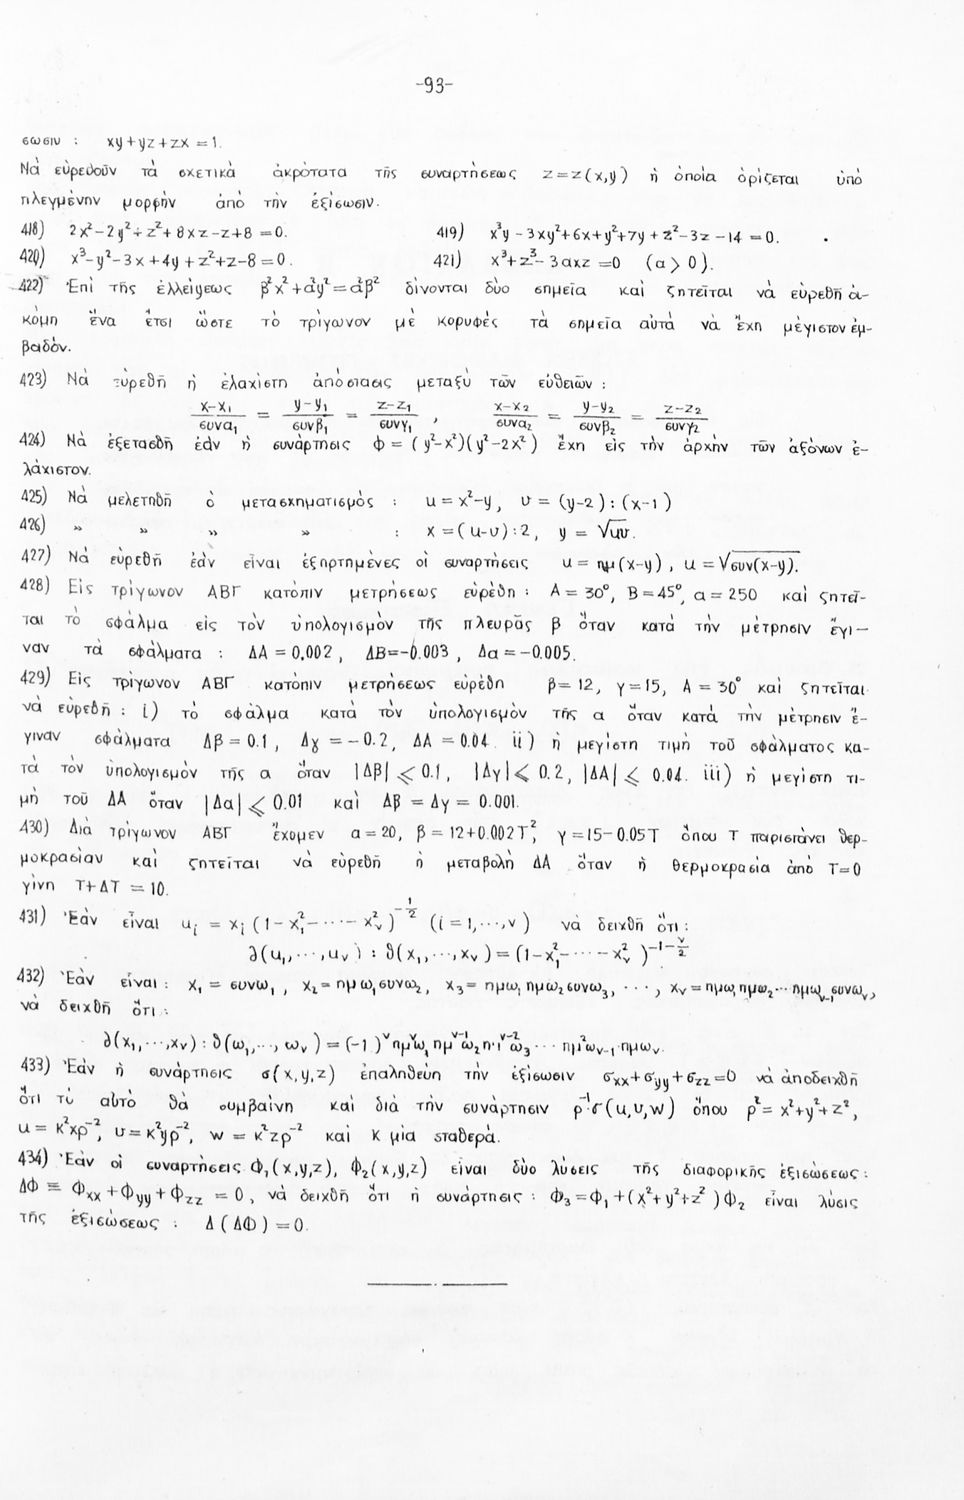 -93-
σωσιν : xy+yz+zx = 1.
Νὰ εὑρεθοῦν τὰ σχετικὰ ἀκρότατα τῆς συναρτήσεως z=z(x,y) ἡ ὁποία ὁρίζεται ὑπὸ
πλεγμένην μορφὴν ἀπὸ τὴν ἐξίσωσιν.
418) 2x²-2y²+z²+8xz-z+8 =0. 419) x³y-3xy²+6x+y²+7y+z²-3z-14 =0.
420) x³-y²-3x+4y+z²+z-8=0. 421) x³+z³-3αxz =0 (α > 0).
422) Ἐπὶ τῆς ἐλλείψεως β²x²+α²y²=α²β² δίνονται δύο σημεῖα καὶ ζητεῖται νὰ εὑρεθῇ ἀ-
κόμη ἕνα ἔτσι ὥστε τὸ τρίγωνον μὲ κορυφὲς τὰ σημεῖα αὐτὰ νὰ ἔχη μέγιστον ἐμ-
βαδόν.
423) Νὰ εὑρεθῇ ἡ ἐλαχίστη ἀπόστασις μεταξὺ τῶν εὐθειῶν :
(x-x₁)/συνα₁ = (y-y₁)/συνβ₁ = (z-z₁)/συνγ₁ , (x-x₂)/συνα₂ = (y-y₂)/συνβ₂ = (z-z₂)/συνγ₂
424) Νὰ ἐξετασθῇ ἐὰν ἡ συνάρτησις Φ = (y²-x²)(y²-2x²) ἔχη εἰς τὴν ἀρχὴν τῶν ἀξόνων ἐ-
λάχιστον.
425) Νὰ μελετηθῇ ὁ μετασχηματισμὸς : u = x²-y, υ = (y-2) : (x-1)
426) » » » » : x =(u-υ):2, y = √uυ.
427) Νὰ εὑρεθῇ ἐὰν εἶναι ἐξηρτημένες οἱ συναρτήσεις u = ημ(x-y), u = √συν(x-y).
428) Εἰς τρίγωνον ΑΒΓ κατόπιν μετρήσεως εὑρέθη : Α = 30°, Β=45°, α = 250 καὶ ζητεῖ-
ται τὸ σφάλμα εἰς τὸν ὑπολογισμὸν τῆς πλευρᾶς β ὅταν κατὰ τὴν μέτρησιν ἔγι-
ναν τὰ σφάλματα : ΔΑ = 0.002, ΔΒ=-0.003, Δα = -0.005.
429) Εἰς τρίγωνον ΑΒΓ κατόπιν μετρήσεως εὑρέθη β= 12, γ=15, Α = 30° καὶ ζητεῖται
νὰ εὑρεθῇ : i) τὸ σφάλμα κατὰ τὸν ὑπολογισμὸν τῆς α ὅταν κατὰ τὴν μέτρησιν ἔ-
γιναν σφάλματα Δβ = 0.1, Δγ = -0.2, ΔΑ = 0.04. ii) ἡ μεγίστη τιμὴ τοῦ σφάλματος κα-
τὰ τὸν ὑπολογισμὸν τῆς α ὅταν |Δβ| ⩽ 0.1, |Δγ| ⩽ 0.2, |ΔΑ| ⩽ 0.04. iii) ἡ μεγίστη τι-
μὴ τοῦ ΔΑ ὅταν |Δα| ⩽ 0.01 καὶ Δβ = Δγ = 0.001.
430) Διὰ τρίγωνον ΑΒΓ ἔχομεν α=20, β = 12+0.002T², γ=15-0.05T ὅπου T παριστάνει θερ-
μοκρασίαν καὶ ζητεῖται νὰ εὑρεθῇ ἡ μεταβολὴ ΔΑ ὅταν ἡ θερμοκρασία ἀπὸ T=0
γίνη T+ΔT = 10.
431) Ἐὰν εἶναι uᵢ = xᵢ(1-x₁²-···-xᵥ²)^(-1/2) (i=1,···,ν) νὰ δειχθῇ ὅτι :
∂(u₁,···,uᵥ) : ∂(x₁,···,xᵥ) = (1-x₁²-···-xᵥ²)^(-1-ν/2)
432) Ἐὰν εἶναι : x₁ = συνω₁, x₂=ημω₁συνω₂, x₃= ημω₁ημω₂συνω₃, ···, xᵥ=ημω₁ημω₂···ημωᵥ₋₁συνωᵥ,
νὰ δειχθῇ ὅτι :
∂(x₁,···,xᵥ) : ∂(ω₁,···, ωᵥ) = (-1)^ν ημ^νω₁ ημ^(ν-1)ω₂ ημ^(ν-2)ω₃ ··· ημ²ωᵥ₋₁ ημωᵥ.
433) Ἐὰν ἡ συνάρτησις σ(x,y,z) ἐπαληθεύη τὴν ἐξίσωσιν σₓₓ+σyy+σzz=0 νὰ ἀποδειχθῇ
ὅτι τὸ αὐτὸ θὰ συμβαίνη καὶ διὰ τὴν συνάρτησιν ρ⁻¹σ(u,υ,w) ὅπου ρ²= x²+y²+z²,
u= κ²xρ⁻², υ=κ²yρ⁻², w = κ²zρ⁻² καὶ κ μία σταθερά.
434) Ἐὰν οἱ συναρτήσεις Φ₁(x,y,z), Φ₂(x,y,z) εἶναι δύο λύσεις τῆς διαφορικῆς ἐξισώσεως :
ΔΦ ≡ Φₓₓ+Φyy+Φzz = 0, νὰ δειχθῇ ὅτι ἡ συνάρτησις : Φ₃=Φ₁+(x²+y²+z²)Φ₂ εἶναι λύσις
τῆς ἐξισώσεως : Δ(ΔΦ) = 0.